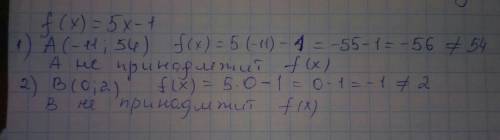 f(x)=5x-1
1) A(-11; 54) f(x)=5(-11)-1=-55-1=-56≠54
A не принадлжит f(x)
2) B(0;2) f(x)=5·0-1=0-1=-1≠2
B не принадлжит f(x)